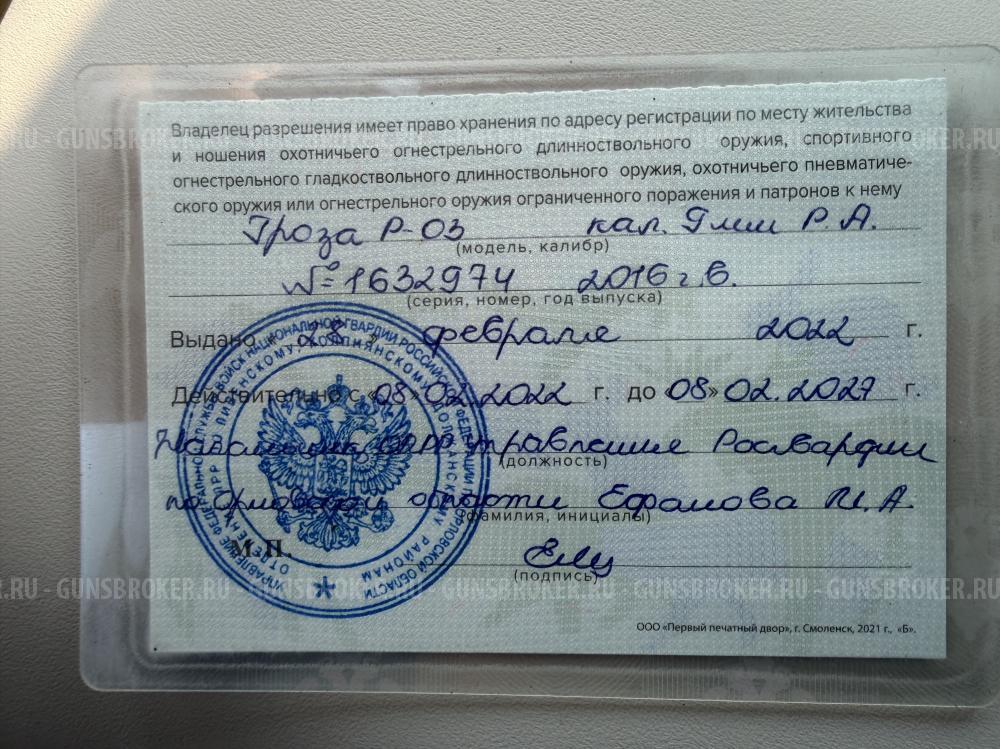 Владелец разрешения имеет право хранения по адресу регистрации по месту жительства
и ношения охотничьего огнестрельного длинноствольного оружия, спортивного
огнестрельного гладкоствольного длинноствольного оружия, охотничьего пневматиче-
ского оружия или огнестрельного оружия ограниченного поражения и патронов к нему
Гроза Р-03 кал. 9мм Р.А.
(модель, калибр)
№ 1632974 2016 г.в.
(серия, номер, год выпуска)
Выдано «28» февраля 2022 г.
Действительно с «08» 02.2022 г. до «08» 02.2027 г.
управления Росгвардии
(должность)
по Орловской области М.А.
(фамилия, инициалы)
М.П.
(подпись)
ООО «Первый печатный двор», г. Смоленск, 2021 г., «Б».
УПРАВЛЕНИЕ ФЕДЕРАЛЬНОЙ СЛУЖБЫ ВОЙСК НАЦИОНАЛЬНОЙ ГВАРДИИ РОССИЙСКОЙ ФЕДЕРАЦИИ ПО ОРЛОВСКОЙ ОБЛАСТИ
RU - GUNSBROKER.RU - GUNSBROKER.RU - GUNSBROKER.RU - GUNSBROKER.RU - GUNSBROKER
.RU - GUNSBROKER.RU - GUNSBROKER.RU - GUNSBROKER.RU - GUNSBROKER.RU - GUNSBROKER.